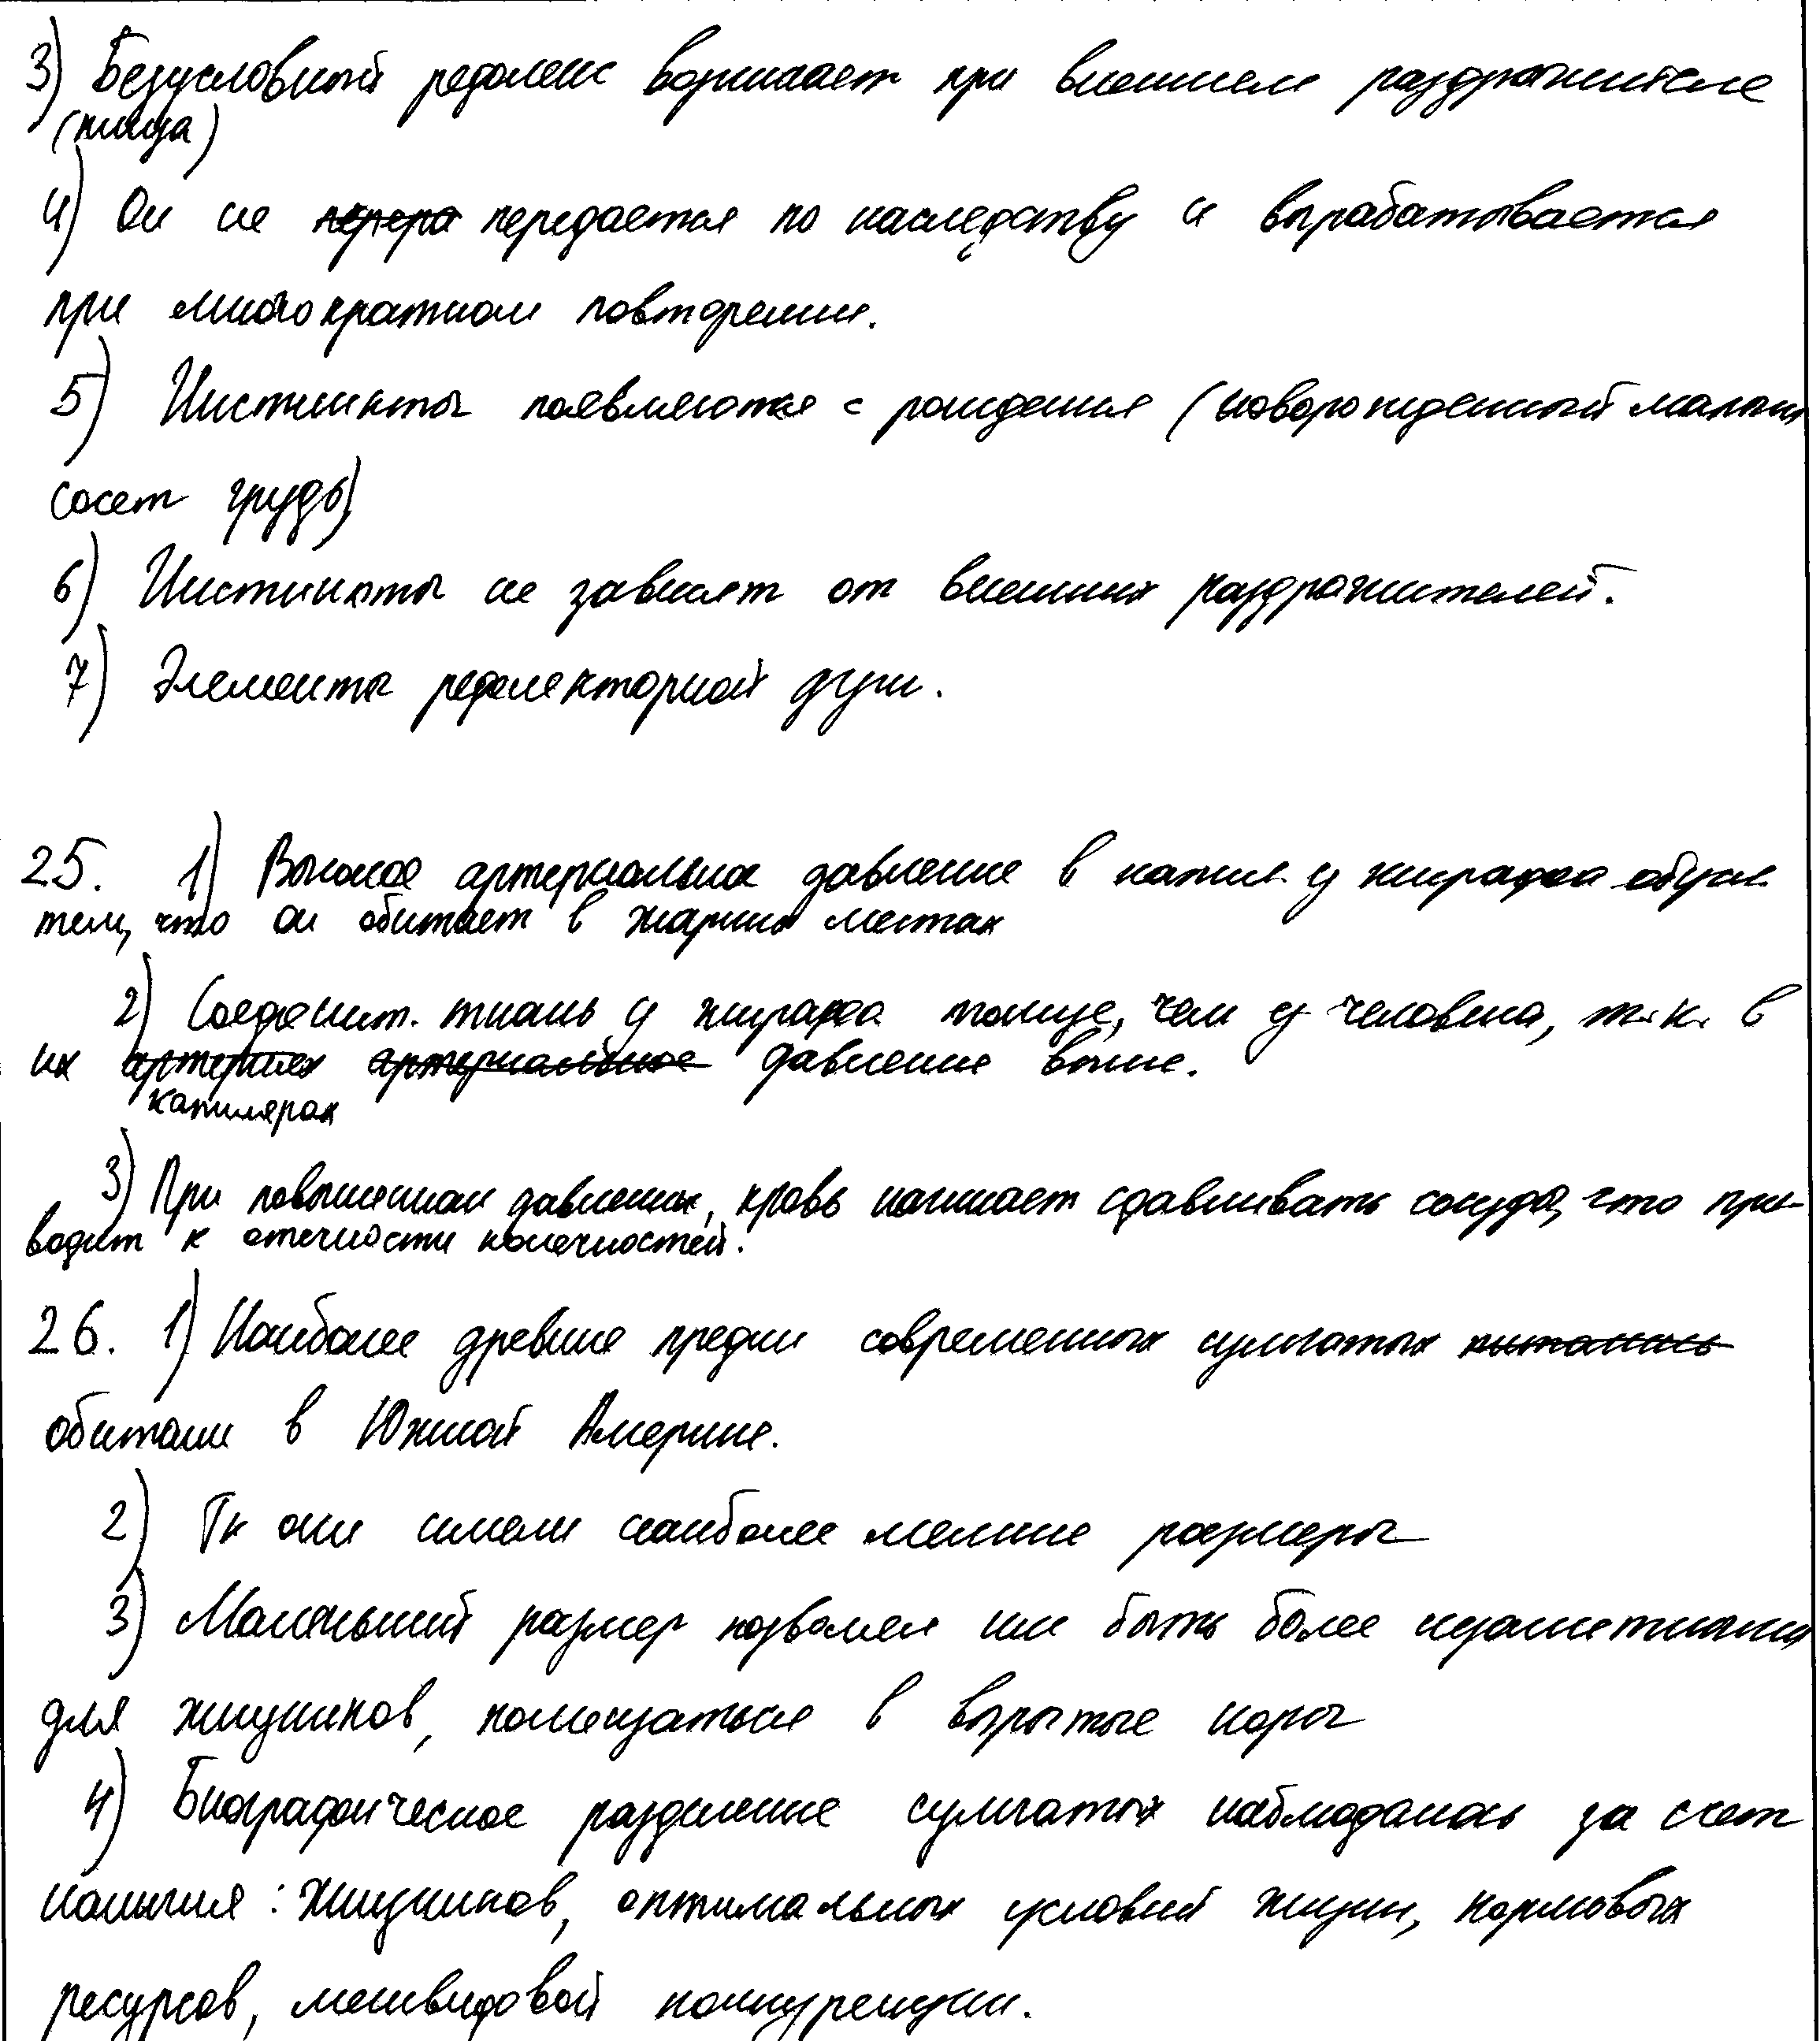 3) Безусловный рефлекс возникает при внешнем раздражителе
(пища)
4) Он не перера передается по наследству и вырабатывается
при многократном повторении.
5) Инстинкты появляются с рождения (новорожденный малыш
сосет грудь)
6) Инстинкты не зависят от внешних раздражителей.
7) Элементы рефлекторной дуги.
25. 1) Высокое артериальное давление в капил. у жирафа обусл.
тем, что он обитает в жарких местах
2) Соединит. ткань у жирафа толще, чем у человека, т.к. в
их артериях артериальное давление выше.
капилярах
3) При повышенном давлении, кровь начинает сдавливать сосуды, что при-
водит к отечности конечностей.
26. 1) Наиболее древние предки современных сумчатых питались
обитали в Южной Америке.
2) Тк они имели наиболее мелкие размеры
3) Маленький размер позволял им быть более незаметными
для хищников, помещаться в вырытые норы
4) Биографическое разделение сумчатых наблюдалось за счет
наличия: хищников, оптимальных условий жизни, кормовых
ресурсов, межвидовой конкуренции.